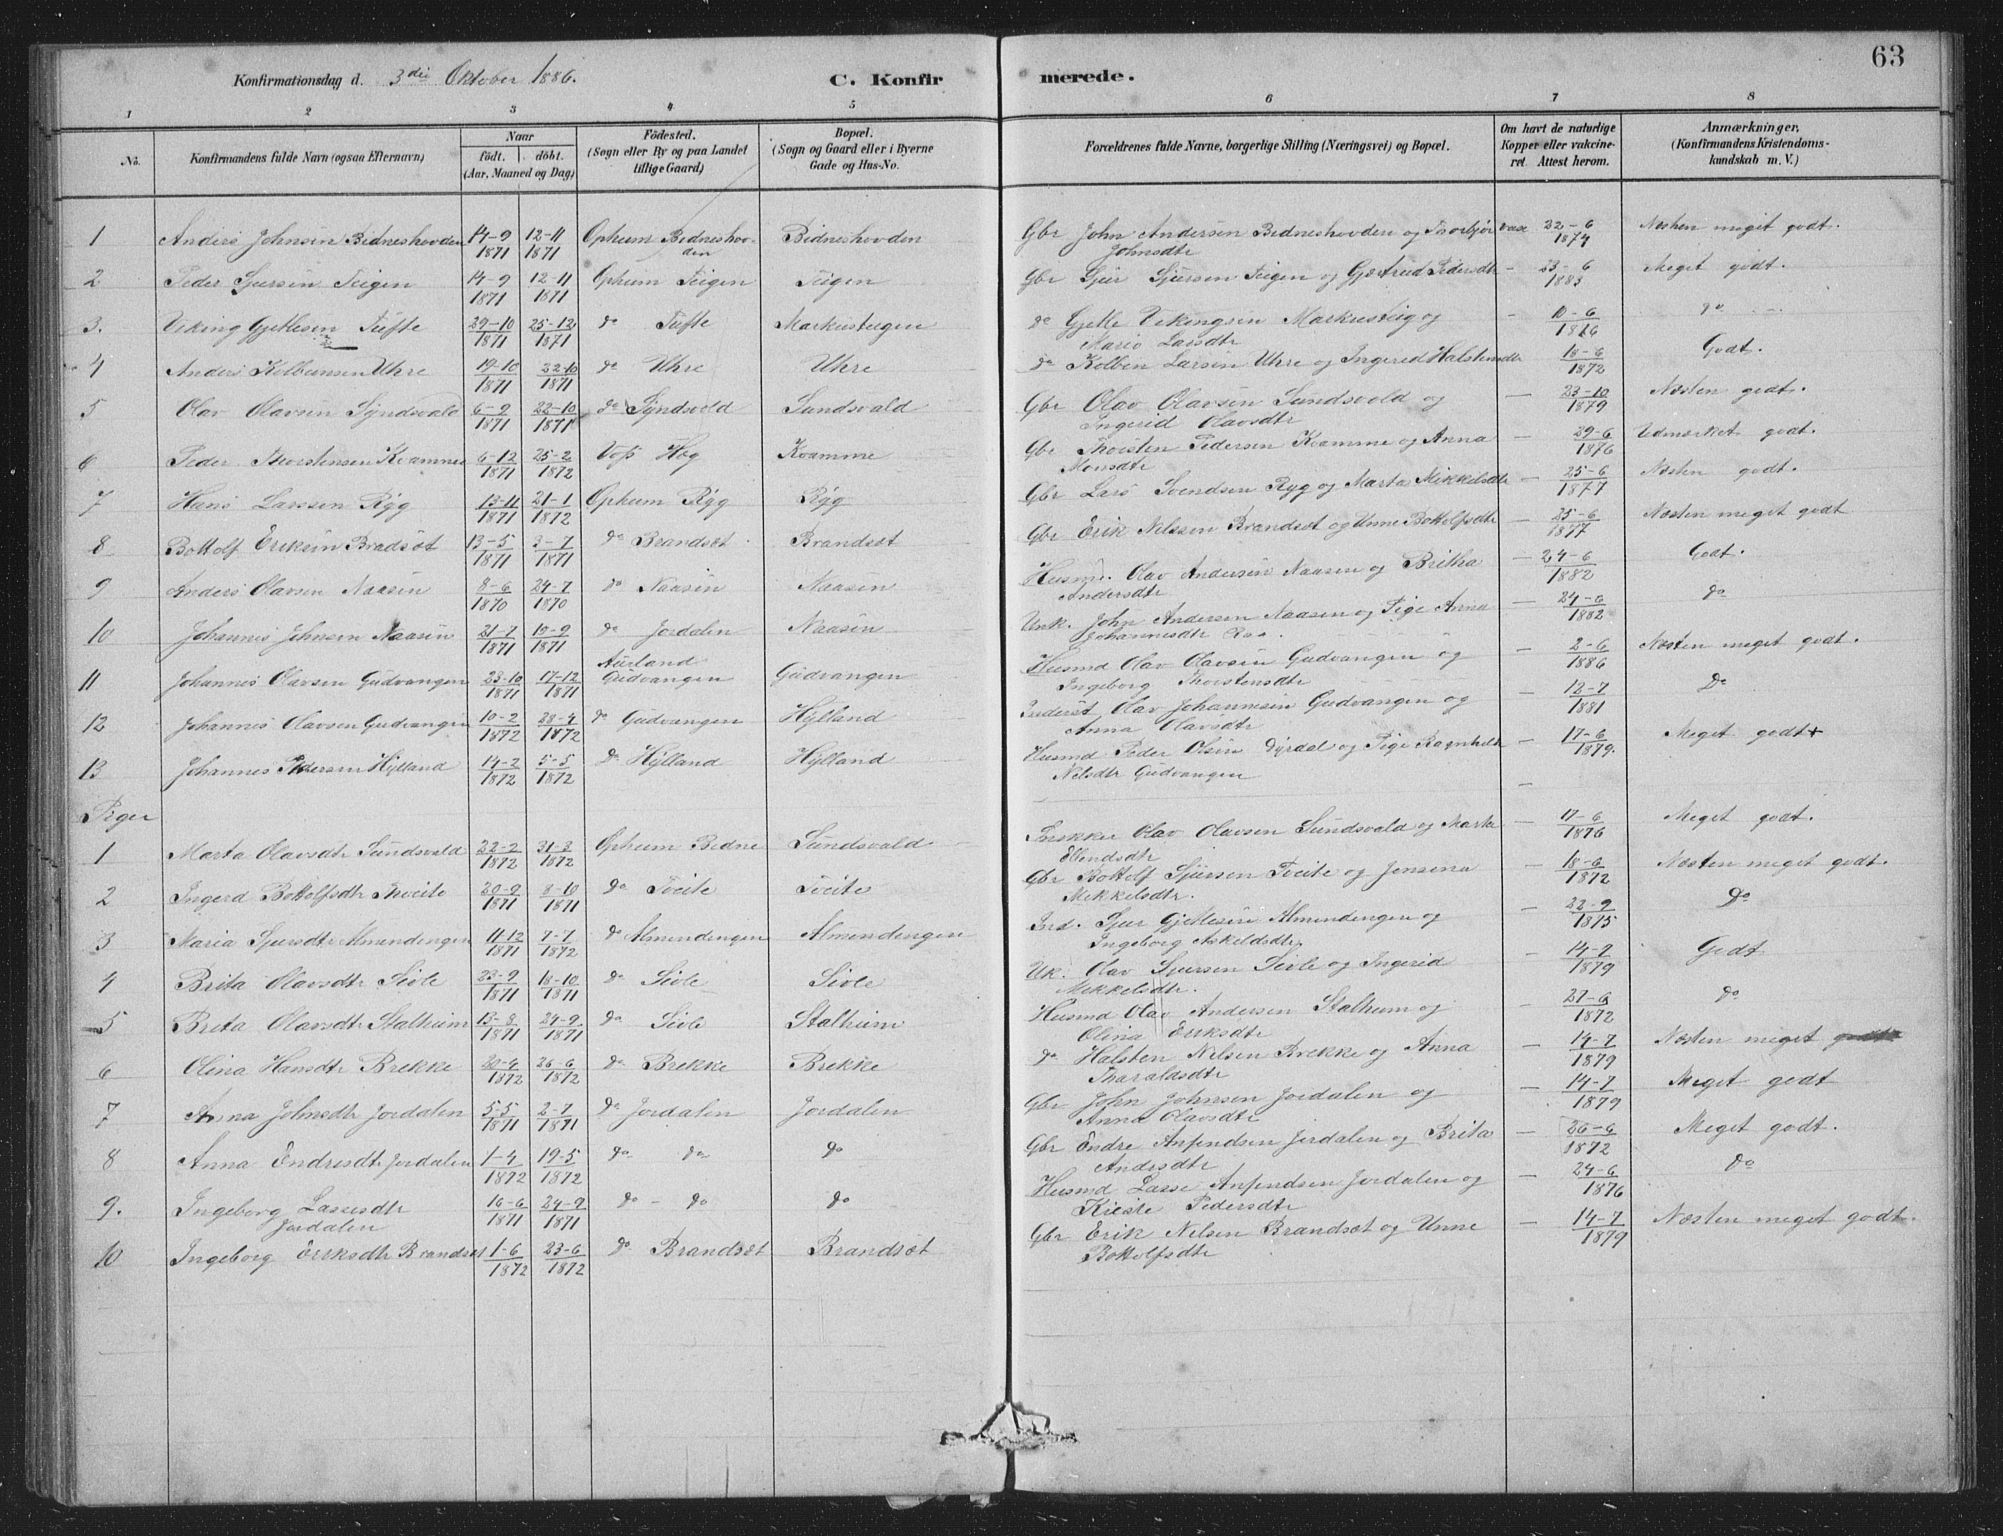 63
Konfirmationsdag d. 3die Oktober 1886. C. Konfirmerede.
1 2 3 4 5 6 7 8
No. Konfirmandens fulde Navn (ogsaa Efternavn) Naar födt. döbt. (Aar, Maaned og Dag) Födested. (Sogn eller By og paa Landet tillige Gaard) Bopæl. (Sogn og Gaard eller i Byerne Gade og Hus-No. Forældrenes fulde Navne, borgerlige Stilling (Næringsvei) og Bopæl. Om havt de naturlige Kopper eller vakcineret. Attest herom. Anmærkninger. (Konfirmandens Kristendomskundskab m. V.)
1 Anders Johnsen Bidneshovden 14-9 1871 12-11 1871 Opheim Bidneshovden Bidneshovden Gbr John Andersen Bidneshovden og Torbjør Johnsdtr vacc 22-6 1874 Næsten meget godt.
2 Peder Sjursen Teigen 14-9 1871 12-11 1871 Opheim Teigen Teigen Gbr Sjur Sjursen Teigen og Gjertrud Pedersdtr - 23-6 1883 Meget godt.
3. Viking Gjetlesen Tufte 29-10 1871 25-12 1871 do Tufte Markusteigen do Gjetle Vikingsen Markusteig og Mario Larsdtr - 10-6 1876 do
4 Anders Kolbensen Uhre 19-10 1871 22-10 1871 do Uhre Uhre do Kolben Larsen Uhre og Ingerid Halstensdtr 18-6 1872 Godt.
5 Olav Olavsen Syndsvald 6-9 1871 22-10 1871 do Syndsvold Sundsvald Gbr Olav Olavsen Sundsvold og Ingerid Olavsdtr - 23-10 1879 Næsten godt.
6 Peder Thorstensen Kvamme 6-12 1871 25-2 1872 Voss Høg Kvamme Gbr Thorsten Pedersen Kvamme og Anna Monsdtr - 29-6 1876 Udmærket godt.
7 Hans Larssen Ryg 13-11 1871 21-1 1872 Opheim Ryg Ryg Gbr Lars Svendsen Ryg og Marta Mikkelsdtr 25-6 1877 Næsten godt.
8 Bottolf Eriksen Bradsæt 13-5 1871 3-7 1871 do Brandsæt Brandsæt Gbr Erik Nelssen Brandsæt og Unne Bottolfsdtr 25-6 1877 Næsten meget godt
9 Anders Olavsen Naasen 8-6 1870 24-7 1870 do Naasen Naasen Husmd. Olav Andersen Naasen og Britha Andersdtr - 24-6 1882 Godt.
10 Johannes Johnsen Naasen 21-7 1871 10-9 1871 do Jordalen Naasen Unk. John Andersen Naasen og Pige Anna Johannesdtr - 24-6 1882 do
11 Johannes Olavsen Gudvangen 23-10 1871 17-12 1871 Aurland Gudvangen Gudvangen Husmd Olav Olavsen Gudvangen og Ingeborg Thorstensdtr - 2-6 1886 Næsten meget godt.
12 Johannes Olavsen Gudvangen 10-2 1872 28-4 1872 do Gudvangen Hylland Inderst Olav Johannesen Gudvangen og Anna Olavsdtr - 12-7 1881 Do
13 Johannes Pedersen Hylland 14-2 1872 5-5 1872 do Hylland Hylland Husmd Peder Olsen Dyrdal og Pige Ragnhild Nelsdtr Gudvangen - 17-6 1879. Meget godt
Piger
1 Marta Olavsdtr Sundsvald 22-2 1872 31-3 1872 Opheim Bidne Sundsvald Olav Olavsen Sundsvald og Marta Ellendsdtr - 17-6 1876 Meget godt.
2 Ingerd Bottolfsdtr Tveite 20-9 1871 8-10 1871 do Tveite Tveite Gbr Bottolf Sjursen Tveite og Jensena Mikkelsdtr. - 18-6 1872 Næsten meget godt.
3 Maria Sjursdtr Almendengen 11-12 1871 7-7 1872 do Almendengen Almendengen Ind. Sjur Gjetlesen Almendengen og Ingeborg Askeldsdtr. - 22-9 1875 Do
4 Brita Olavsdtr Sivle 23-9 1871 18-10 1871 do Sivle Sivle Uk. Olav Sjursen Sivle og Ingerid Mikkelsdtr. - 14-7 1879 Godt
5 Brita Olavsdtr Stalheim 13-8 1871 24-9 1871 do Sivle Stalheim Husmd Olav Andersen Stalheim og Olina Eriksdtr - 27-6 1872 do
6 Olina Hansdtr Brekke 20-4 1872 26-6 1872 do Brekke Brekke do Halsten Nelsen Brekke og Anna Haraldsdtr - 14-7 1879 Næsten meget godt
7 Anna Johnsdtr Jordalen 5-5 1871 2-7 1871 do Jordalen Jordalen Gbr John Johnsen Jordalen og Anna Olavsdtr - 14-7 1879 Meget godt
8 Anna Endresdtr Jordalen 1-4 1872 19-5 1872 do do do Gbr Endre Anfendsen Jordalen og Brita Andersdtr - 26-6 1872 Meget godt.
9. Ingeborg Lassesdtr Jordalen 16-6 1871 24-9 1871 do - do do Husmd Lasse Anfendsen Jordalen og Pedersdtr - 24-6 1876 do
10 Ingeborg Eriksdtr Brandsæt 1-6 1872 23-6 1872 do Brandsæt Brandsæt Gbr Erik Nelsen Brandsæt og Unne Bottolfsdtr - 14-7 1879 Næsten meget godt.